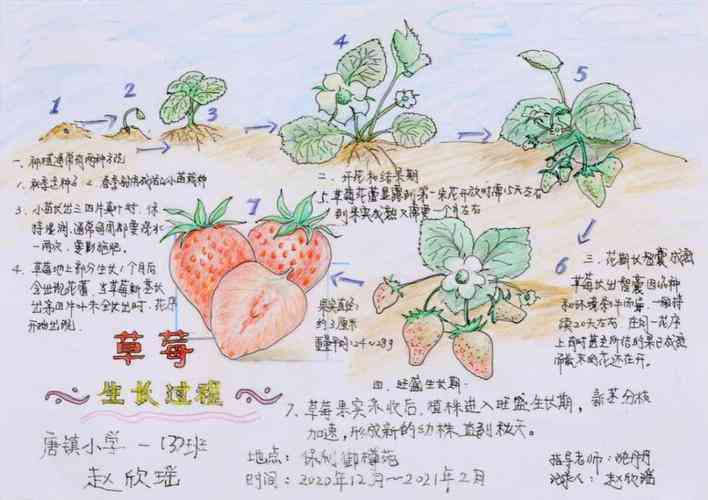 1
2
3
4
5
6
7
一、种植通常有两种方法
1.秋季选种子 2.春季
3. 小苗长出三四片真叶时，保
持湿润，通常每周都要浇水
一两次，要施肥。
4. 草莓地上部分生长1个月后
会出现花蕾，当草莓新茎长
出来四片叶未全长出时，花序
开始出现。
二、开花和结果期
5.草莓花蕾显露到第一朵花开放时需15天左右
到果实成熟又需要一个月左右
三、花期长
草莓花期长因品种
和环境条件而异，一般持
续20天左右，在同一花序
上有时甚至所结的果已成熟
而最末的花还在开。
果实直径：
约3厘米
重量平均：24~28g
四、旺盛生长期：
7、草莓果实采收后，植株进入旺盛生长期，新茎分枝
加速，形成新的幼株，直到秋天。
草莓
生长过程
唐镇小学一(3)班
赵欣瑶
地点：保利御樽苑
时间：2020年12月～2021年2月
指导老师：
记录人：赵欣瑶